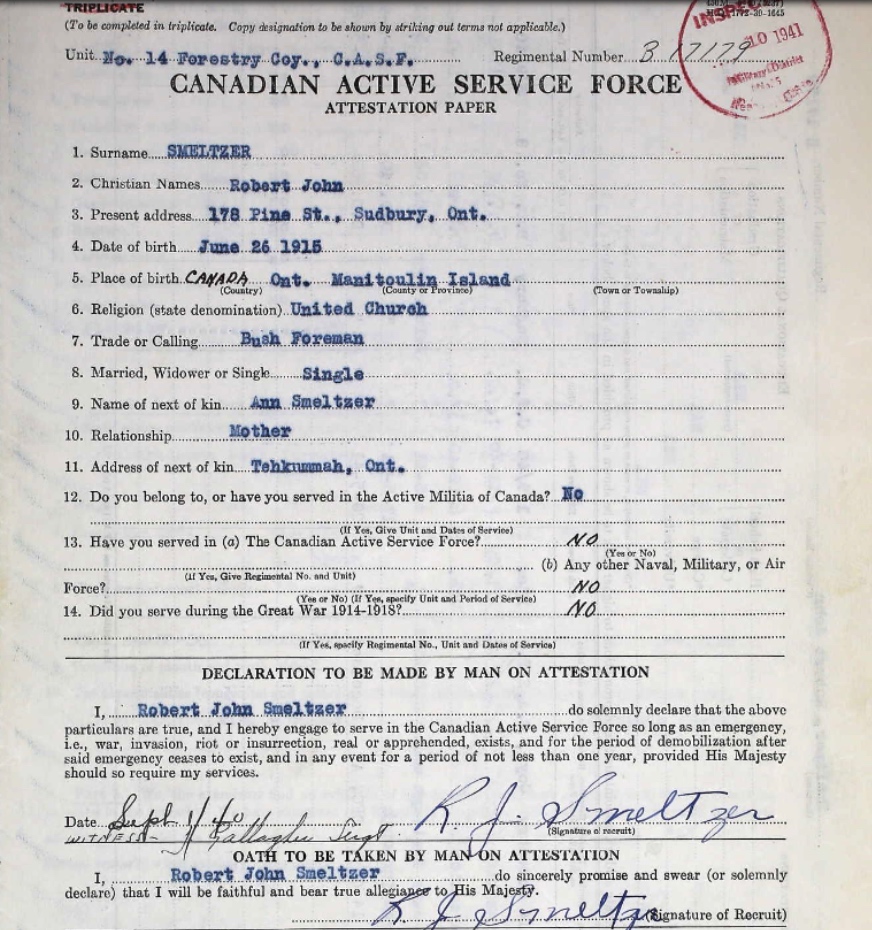 TRIPLICATE
(To be completed in triplicate. Copy designation to be shown by striking out terms not applicable.)
INSPEC 10 1941
Military District
Unit No. 14 Forestry Coy., C.A.S.F. Regimental Number B 17179
CANADIAN ACTIVE SERVICE FORCE
ATTESTATION PAPER
1. Surname SMELTZER
2. Christian Names Robert John
3. Present address 178 Pine St., Sudbury, Ont.
4. Date of birth June 26 1915
5. Place of birth CANADA Ont. Manitoulin Island
(Country) (County or Province) (Town or Township)
6. Religion (state denomination) United Church
7. Trade or Calling Bush Foreman
8. Married, Widower or Single Single
9. Name of next of kin Ann Smeltzer
10. Relationship Mother
11. Address of next of kin Tehkummah, Ont.
12. Do you belong to, or have you served in the Active Militia of Canada? No
(If Yes, Give Unit and Dates of Service)
13. Have you served in (a) The Canadian Active Service Force? NO
(Yes or No)
(b) Any other Naval, Military, or Air
(If Yes, Give Regimental No. and Unit)
Force? NO
(Yes or No) (If Yes, specify Unit and Period of Service)
14. Did you serve during the Great War 1914-1918? NO
(If Yes, specify Regimental No., Unit and Dates of Service)
DECLARATION TO BE MADE BY MAN ON ATTESTATION
I, Robert John Smeltzer do solemnly declare that the above
particulars are true, and I hereby engage to serve in the Canadian Active Service Force so long as an emergency,
i.e., war, invasion, riot or insurrection, real or apprehended, exists, and for the period of demobilization after
said emergency ceases to exist, and in any event for a period of not less than one year, provided His Majesty
should so require my services.
Date Sept 1/40 R. J. Smeltzer
(Signature of recruit)
WITNESS- Gallagher Sergt.
OATH TO BE TAKEN BY MAN ON ATTESTATION
I, Robert John Smeltzer do sincerely promise and swear (or solemnly
declare) that I will be faithful and bear true allegiance to His Majesty.
R J Smeltzer (Signature of Recruit)